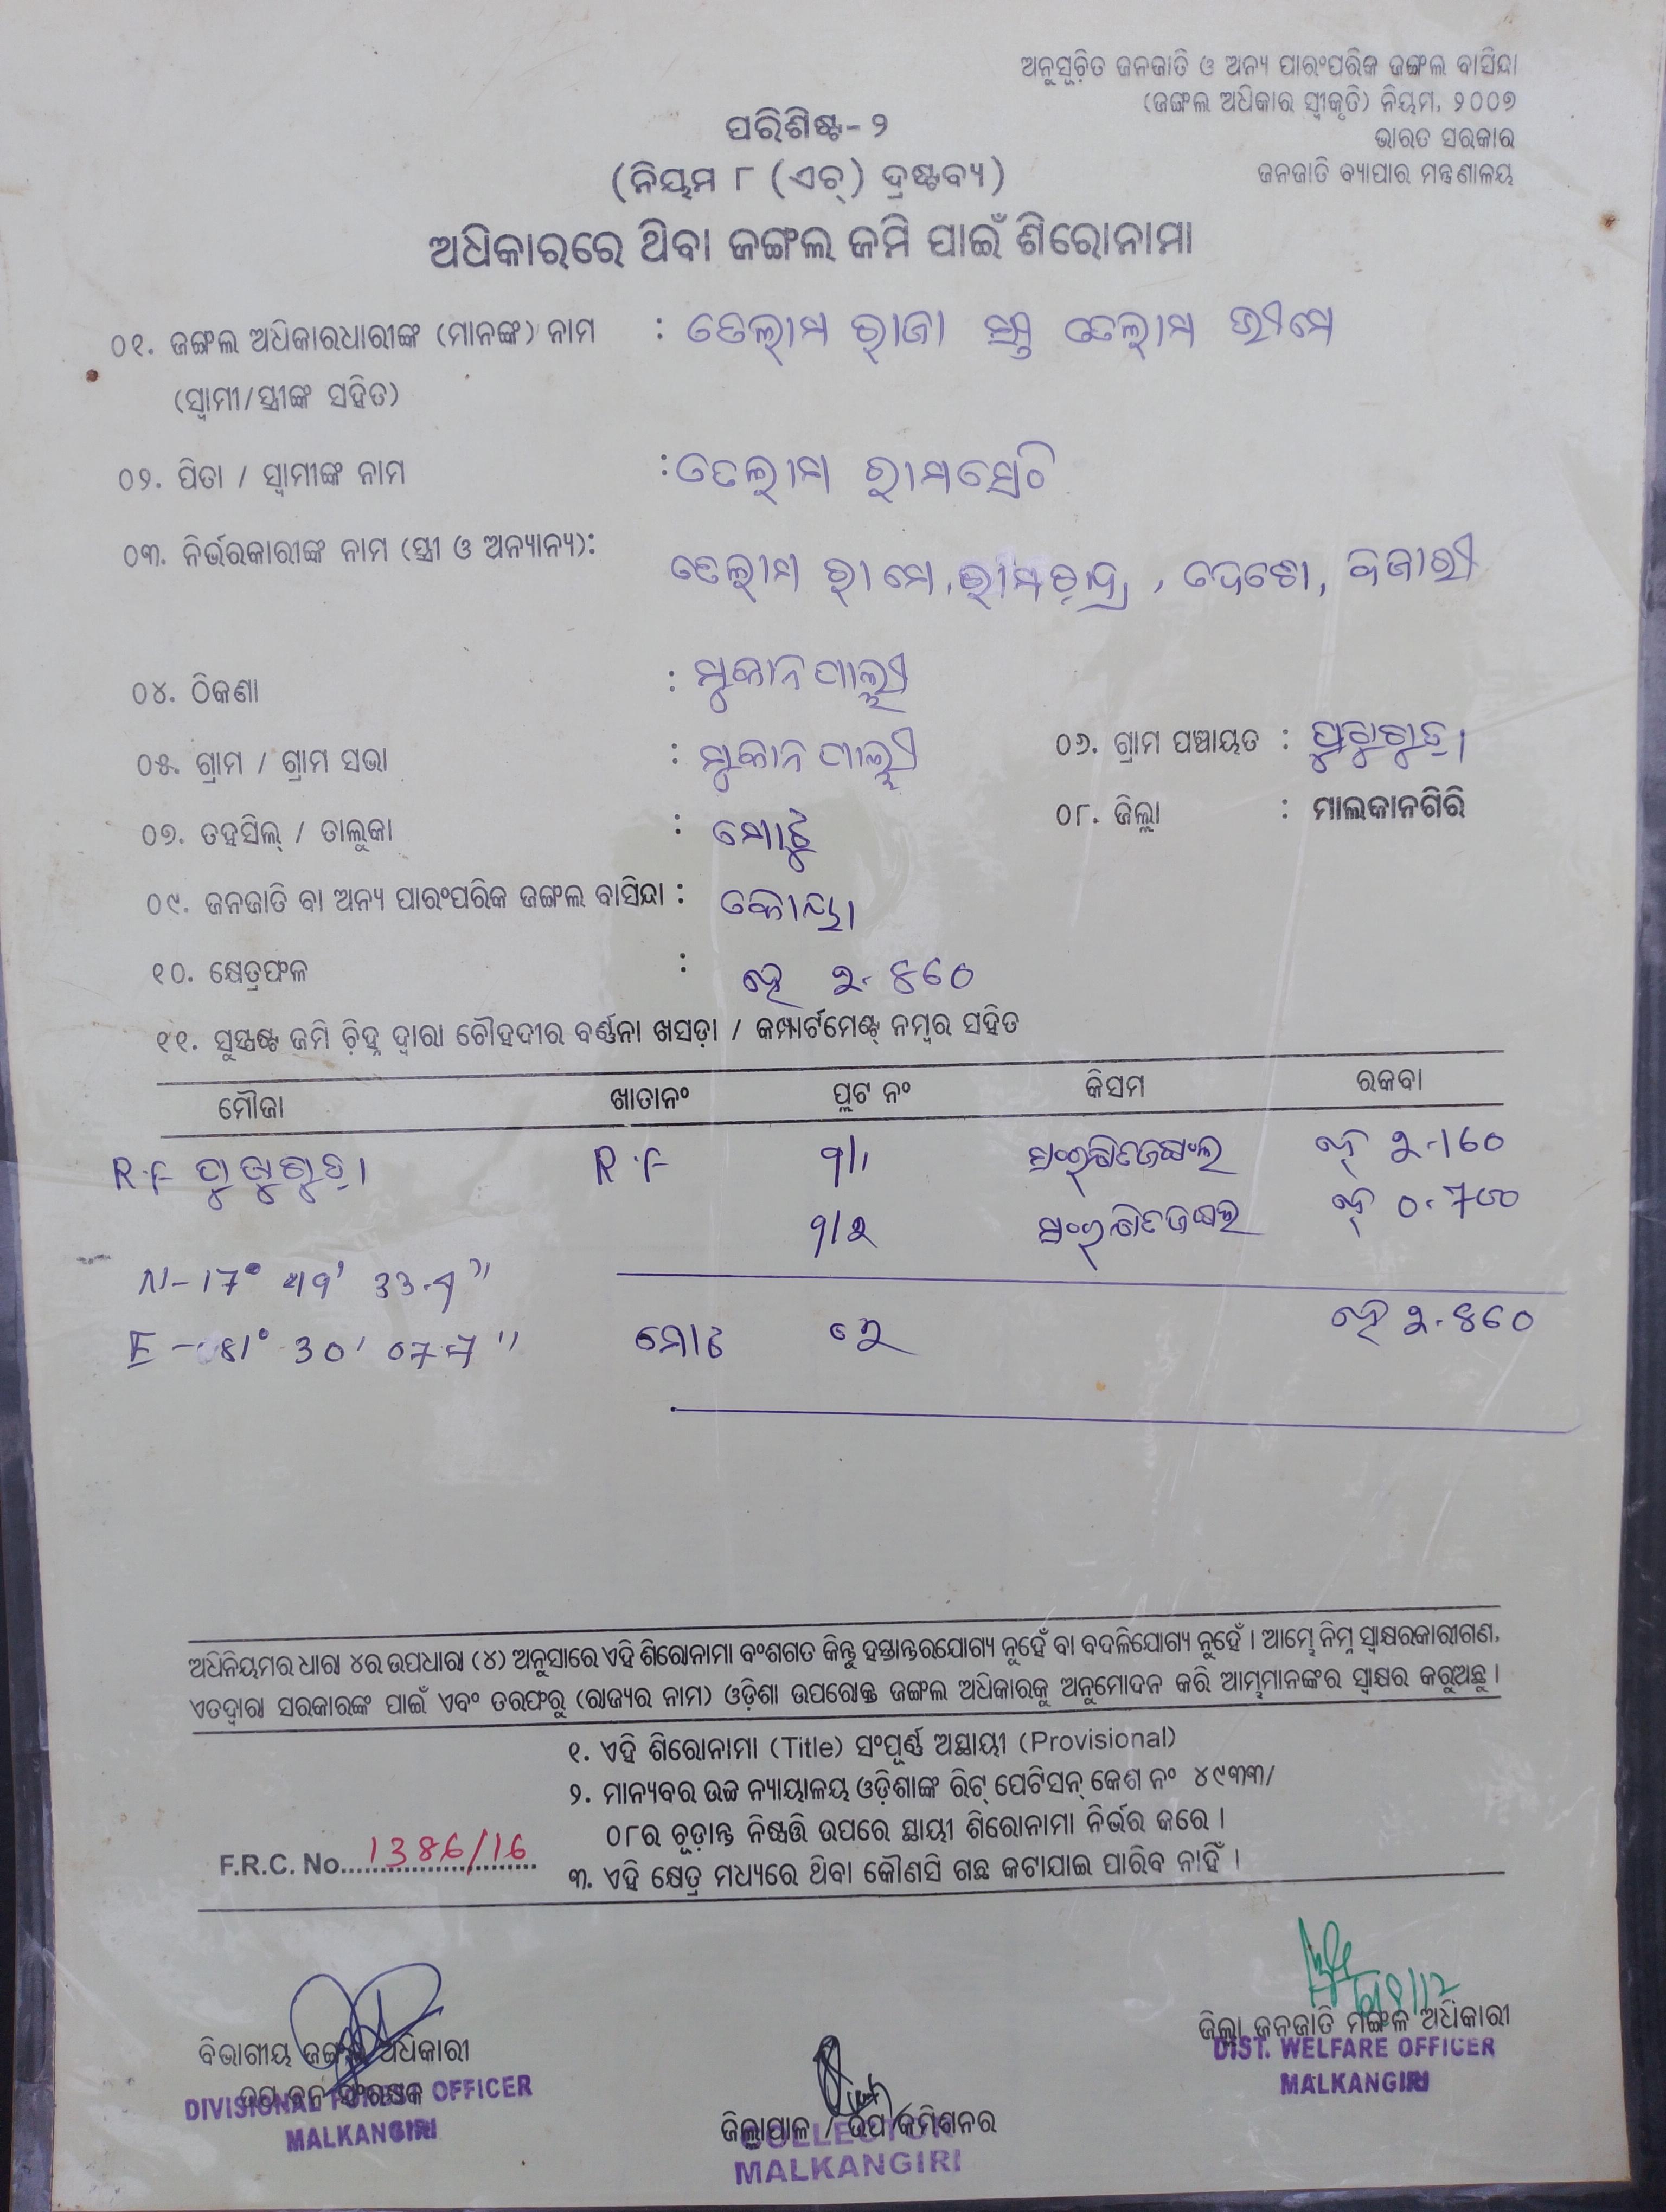 ଅନୁସୂଚିତ ଜନଜାତି ଓ ଅନ୍ୟ ପାରଂପରିକ ଜଙ୍ଗଲ ବାସିନ୍ଦା
(ଜଙ୍ଗଲ ଅଧିକାର ସ୍ୱୀକୃତି) ନିୟମ, ୨୦୦୭
ଭାରତ ସରକାର
ଜନଜାତି ବ୍ୟାପାର ମନ୍ତ୍ରଣାଳୟ
ପରିଶିଷ୍ଟ-୨
(ନିୟମ ୮ (ଏଚ୍) ଦ୍ରଷ୍ଟବ୍ୟ)
ଅଧିକାରରେ ଥିବା ଜଙ୍ଗଲ ଜମି ପାଇଁ ଶିରୋନାମା
୦୧. ଜଙ୍ଗଲ ଅଧିକାରଧାରୀଙ୍କ (ମାନଙ୍କ) ନାମ : ତେଲାମ ରାଜା ତେଲାମ ଭୀମେ
(ସ୍ୱାମୀ/ସ୍ତ୍ରୀଙ୍କ ସହିତ)
୦୨. ପିତା / ସ୍ୱାମୀଙ୍କ ନାମ : ତେଲାମ
୦୩. ନିର୍ଭରକାରୀଙ୍କ ନାମ (ସ୍ତ୍ରୀ ଓ ଅନ୍ୟାନ୍ୟ): ତେଲାମ ରାମେ,
୦୪. ଠିକଣା : ମୁକାନପାଲ୍ଲୀ
୦୫. ଗ୍ରାମ / ଗ୍ରାମ ସଭା : ମୁକାନପାଲ୍ଲୀ ୦୬. ଗ୍ରାମ ପଞ୍ଚାୟତ :
୦୭. ତହସିଲ୍ / ତାଲୁକା : ମୋଟୁ ୦୮. ଜିଲ୍ଲା : ମାଲକାନଗିରି
୦୯. ଜନଜାତି ବା ଅନ୍ୟ ପାରଂପରିକ ଜଙ୍ଗଲ ବାସିନ୍ଦା : କୋୟା
୧୦. କ୍ଷେତ୍ରଫଳ : ହେ ୨.୫60
୧୧. ସୁସ୍ପଷ୍ଟ ଜମି ଚିହ୍ନ ଦ୍ୱାରା ଚୌହଦୀର ବର୍ଣ୍ଣନା ଖସଡ଼ା / କମ୍ପାର୍ଟମେଣ୍ଟ୍ ନମ୍ବର ସହିତ
ମୌଜା ଖାତାନଂ ପ୍ଲଟ ନଂ କିସମ ରକବା
R.F R.F
N-17° 33.
E-81° 30' ମୋଟ ହେ ୨.୫60
ଅଧିନିୟମର ଧାରା ୪ର ଉପଧାରା (୪) ଅନୁସାରେ ଏହି ଶିରୋନାମା ବଂଶଗତ କିନ୍ତୁ ହସ୍ତାନ୍ତରଯୋଗ୍ୟ ନୁହେଁ ବା ବଦଳିଯୋଗ୍ୟ ନୁହେଁ । ଆମ୍ଭେ ନିମ୍ନ ସ୍ୱାକ୍ଷରକାରୀଗଣ,
ଏତଦ୍ୱାରା ସରକାରଙ୍କ ପାଇଁ ଏବଂ ତରଫରୁ (ରାଜ୍ୟର ନାମ) ଓଡ଼ିଶା ଉପରୋକ୍ତ ଜଙ୍ଗଲ ଅଧିକାରକୁ ଅନୁମୋଦନ କରି ଆମ୍ଭମାନଙ୍କର ସ୍ୱାକ୍ଷର କରୁଅଛୁ ।
୧. ଏହି ଶିରୋନାମା (Title) ସଂପୂର୍ଣ୍ଣ ଅସ୍ଥାୟୀ (Provisional)
୨. ମାନ୍ୟବର ଉଚ୍ଚ ନ୍ୟାୟାଳୟ ଓଡ଼ିଶାଙ୍କ ରିଟ୍ ପେଟିସନ୍ କେଶ ନଂ ୪୯୩୩/
୦୮ର ଚୂଡ଼ାନ୍ତ ନିଷ୍ପତ୍ତି ଉପରେ ସ୍ଥାୟୀ ଶିରୋନାମା ନିର୍ଭର କରେ ।
F.R.C. No. 1386/16
୩. ଏହି କ୍ଷେତ୍ର ମଧ୍ୟରେ ଥିବା କୌଣସି ଗଛ କଟାଯାଇ ପାରିବ ନାହିଁ ।
ବିଭାଗୀୟ ଜଙ୍ଗଲ ଅଧିକାରୀ
ଉପ ବନ ସଂରକ୍ଷକ
DIVISIONAL FOREST OFFICER
MALKANGIRI
ଜିଲ୍ଲାପାଳ / ଉପ କମିଶନର
COLLECTOR
MALKANGIRI
ଜିଲ୍ଲା ଜନଜାତି ମଙ୍ଗଳ ଅଧିକାରୀ
DIST. WELFARE OFFICER
MALKANGIRI